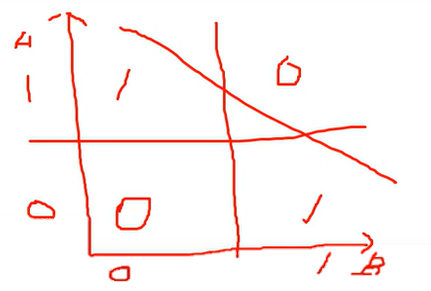 A
1 1 0
0 0 1
0 1 B